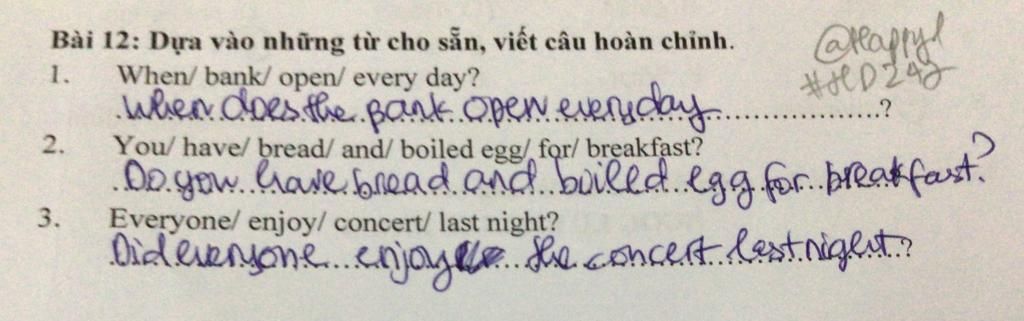 Bài 12: Dựa vào những từ cho sẵn, viết câu hoàn chỉnh.
@Happyl
#HD249
1. When/ bank/ open/ every day?
When does the bank open everyday ?
2. You/ have/ bread/ and/ boiled egg/ for/ breakfast?
Do you have bread and boiled egg for breakfast?
3. Everyone/ enjoy/ concert/ last night?
Did everyone enjoy the concert last night?